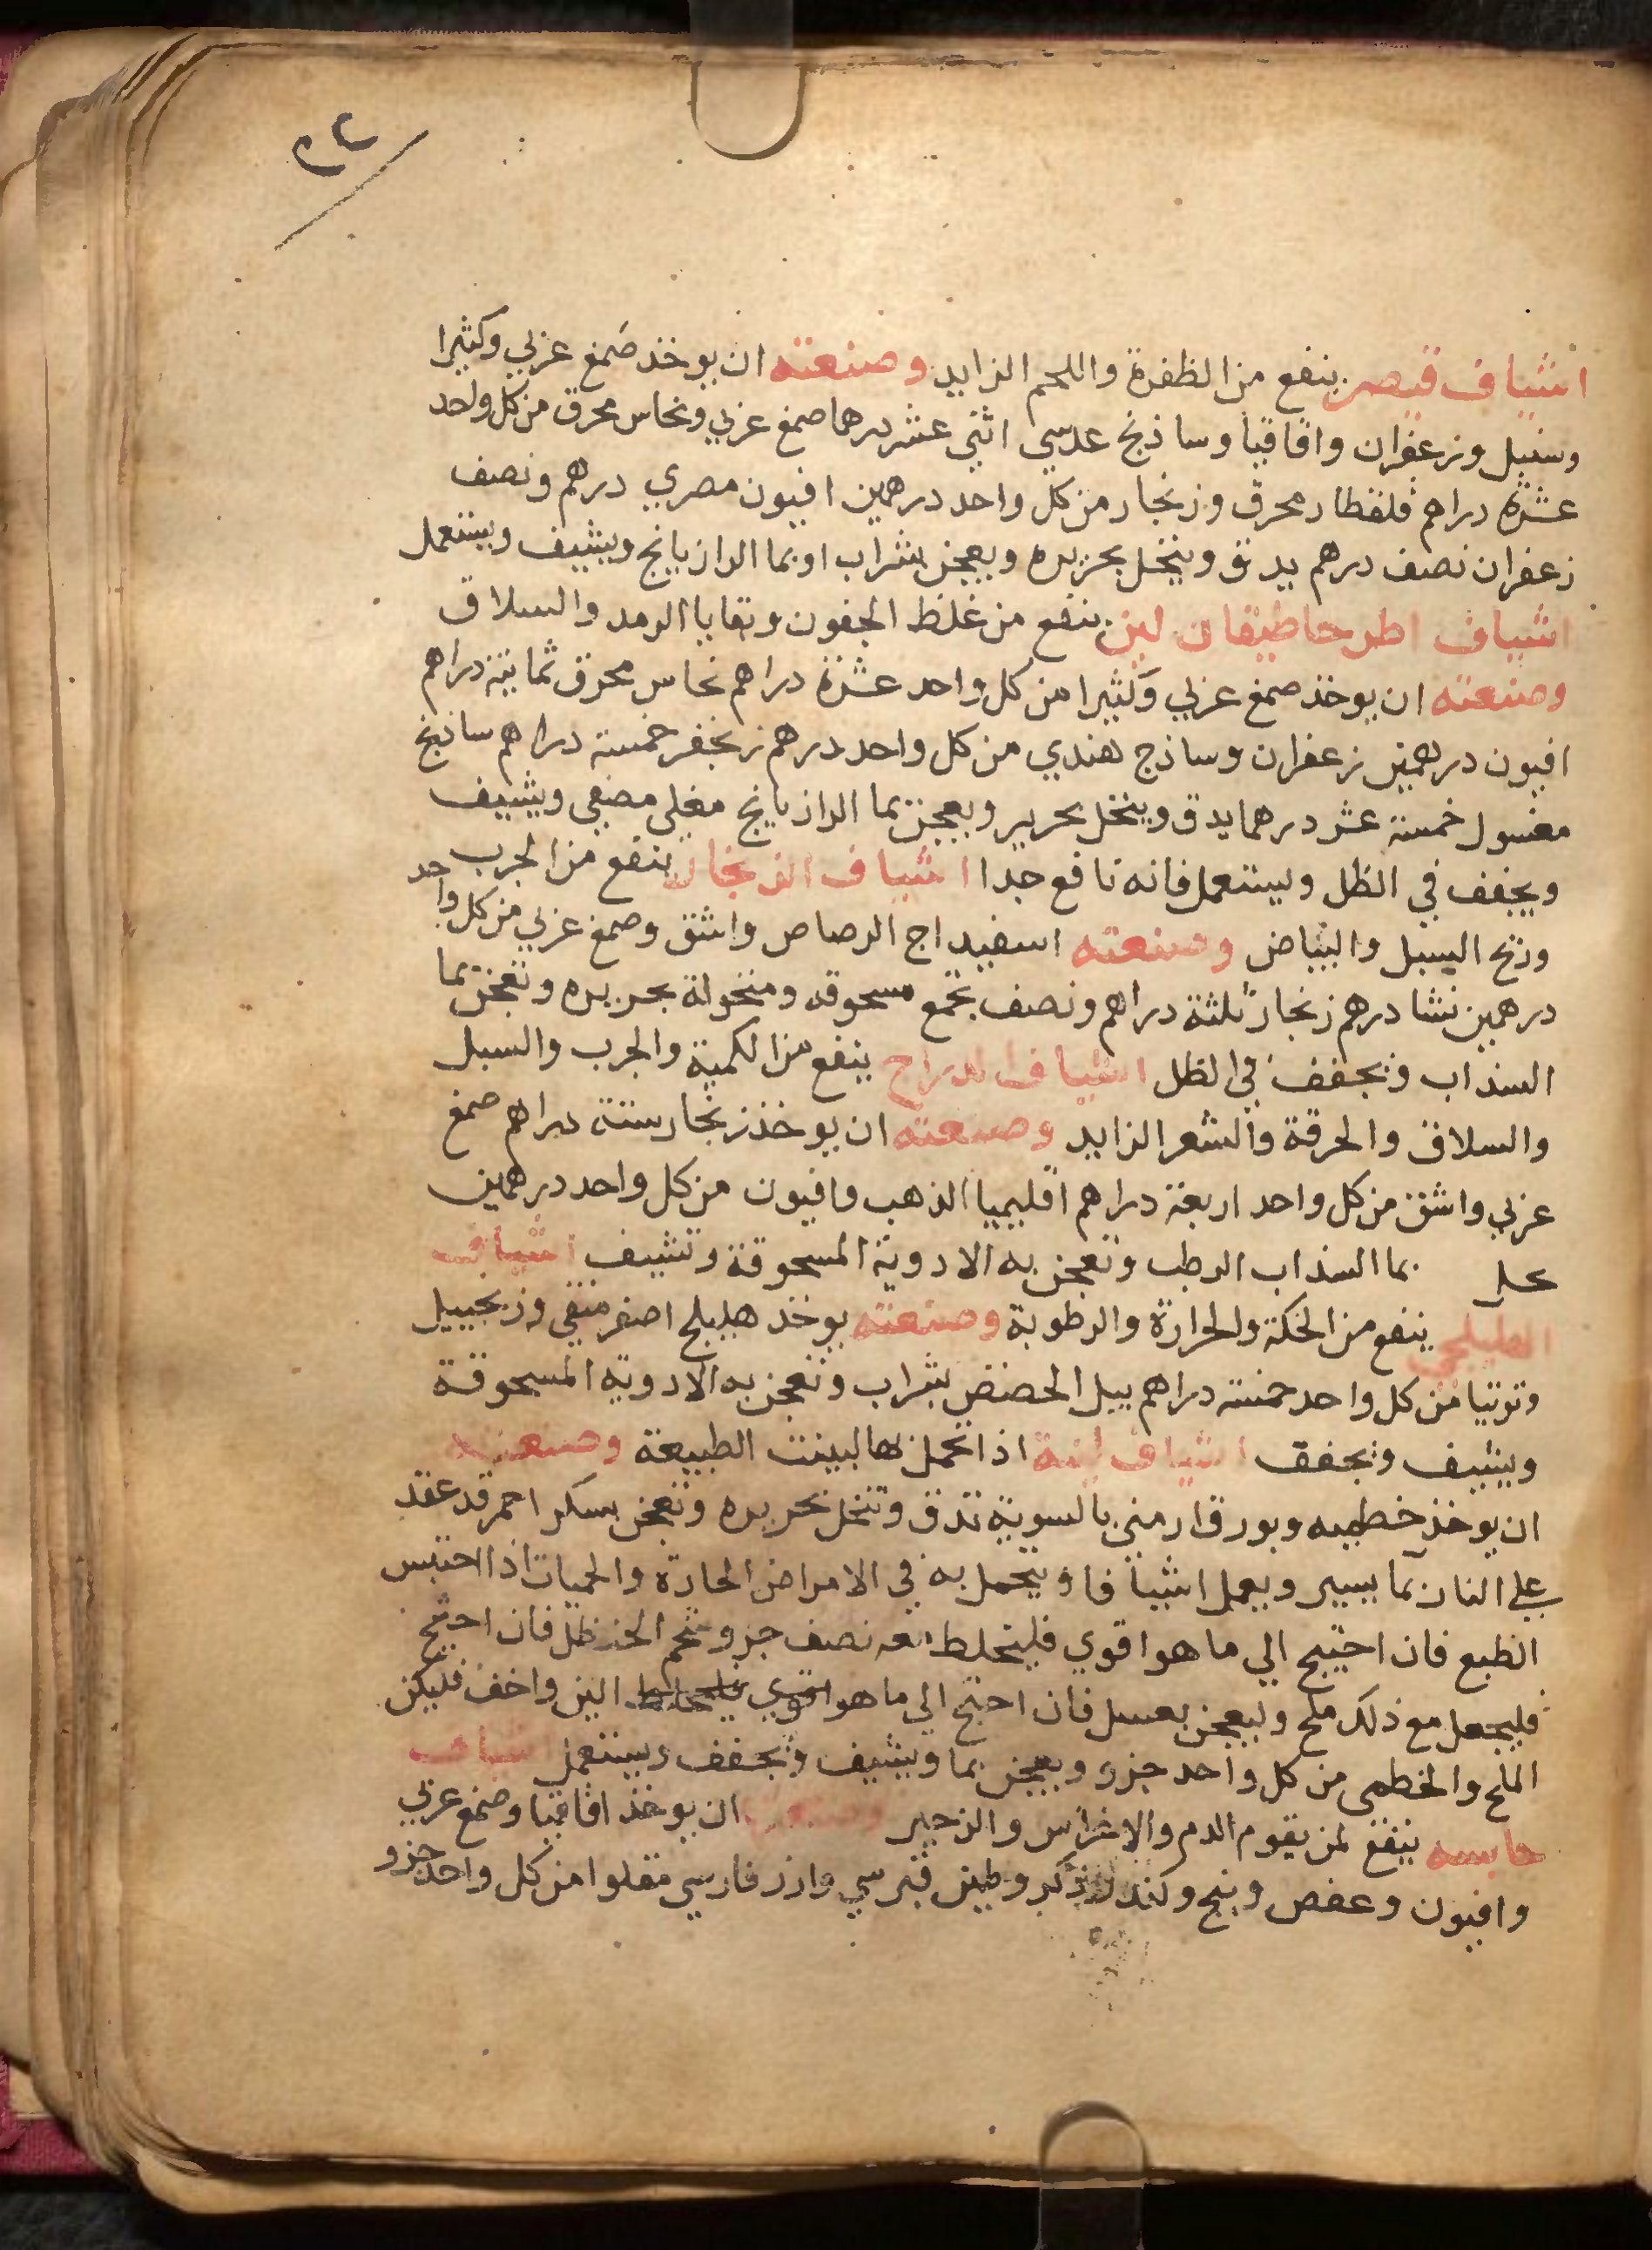 ٥٢
اشياف قيصر ينفع من الظفرة واللحم الزايد وصنعته ان يوخذ صمغ عربي وكثيرا
وسنبل وزعفران واقاقيا وساذنج عدسي اثني عشر درهما صمغ عربي ونحاس محرق من كل واحد
عشرة دراهم قلقطار محرق وزنجار من كل واحد درهمين افيون مصري درهم ونصف
زعفران نصف درهم يدق وينخل بحريره ويعجن بشراب او بما الرازيانج ويشيف ويستعمل
اشياف اطرخماطيقان لين ينفع من غلظ الجفون وبقايا الرمد والسلاق
وصنعته ان يوخذ صمغ عربي وكثيرا من كل واحد عشرة دراهم نحاس محرق ثمانية دراهم
افيون درهمين زعفران وساذج هندي من كل واحد درهم زنجفر خمسة دراهم ساذنج
مغسول خمسة عشر درهما يدق وينخل بحرير ويعجن بما الرازيانج مغلي مصفي ويشيف
ويجفف في الظل ويستعمل فانه نافع جدا اشياف الزنجار ينفع من الجرب
وريح السبل والبياض وصنعته اسفيداج الرصاص واشق وصمغ عربي من كل واحد
درهمين نشا درهم زنجار ثلثة دراهم ونصف تجمع مسحوقه ومنخولة بحريره وتعجن بما
السذاب وتجفف في الظل اشياف الدراج ينفع من الكمية والجرب والسبل
والسلاق والحرقة والشعر الزايد وصنعته ان يوخذ زنجار ستة دراهم صمغ
عربي واشق من كل واحد اربعة دراهم اقليميا الذهب وافيون من كل واحد درهمين
يحل بما السذاب الرطب وتعجن به الادوية المسحوقة وتشيف اشياف
الهليلجي ينفع من الحكة والحرارة والرطوبة وصنعته يوخذ هليلج اصفر منقي وزنجبيل
وتوتيا من كل واحد خمسة دراهم يبل الحضض بشراب وتعجن به الادويه المسحوقة
ويشيف وتجفف اشياف لينة اذا تحمل بها لينت الطبيعة وصنعته
ان يوخذ خطميه وبورق ارمني بالسوية تدق وتنخل بحريره وتعجن بسكر احمر قد عقد
علي النار بما يسير ويعمل اشيافا ويتحمل به في الامراض الحارة والحميات اذا احتبس
الطبع فان احتيج الي ما هو اقوي فليخلط معه نصف جزو شحم الحنظل فان احتيج
فليجعل مع ذلك ملح وليعجن بعسل فان احتيج الي ما هو اقوي فليخلط الين واخف فليكن
الملح والخطمي من كل واحد جزو ويعجن بما ويشيف وتجفف ويستعمل اشياف
حابسه ينفع لمن يقوم الدم والاغراس والزحير وصنعته ان يوخذ اقاقيا وصمغ عربي
وافيون وعفص وبنج وكندر ذكر وطين قبرسي وارز فارسي مقلوا من كل واحد جزو